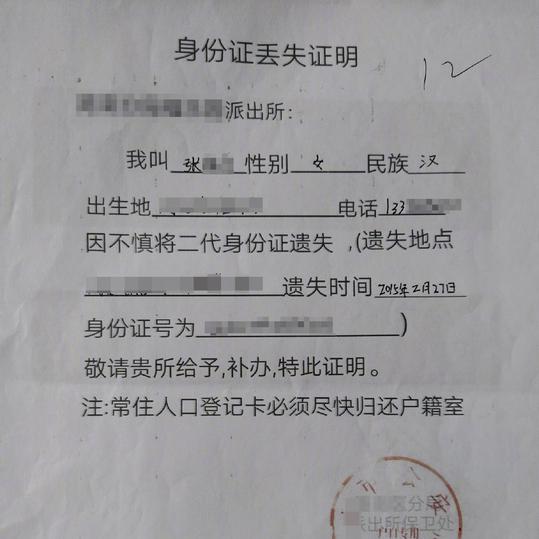 身份证丢失证明
12
派出所：
我叫 张 性别 女 民族 汉
出生地 电话 133
因不慎将二代身份证遗失 ,(遗失地点
遗失时间 2015年2月27日
身份证号为 )
敬请贵所给予,补办,特此证明。
注:常住人口登记卡必须尽快归还户籍室
区分局
派出所保卫处